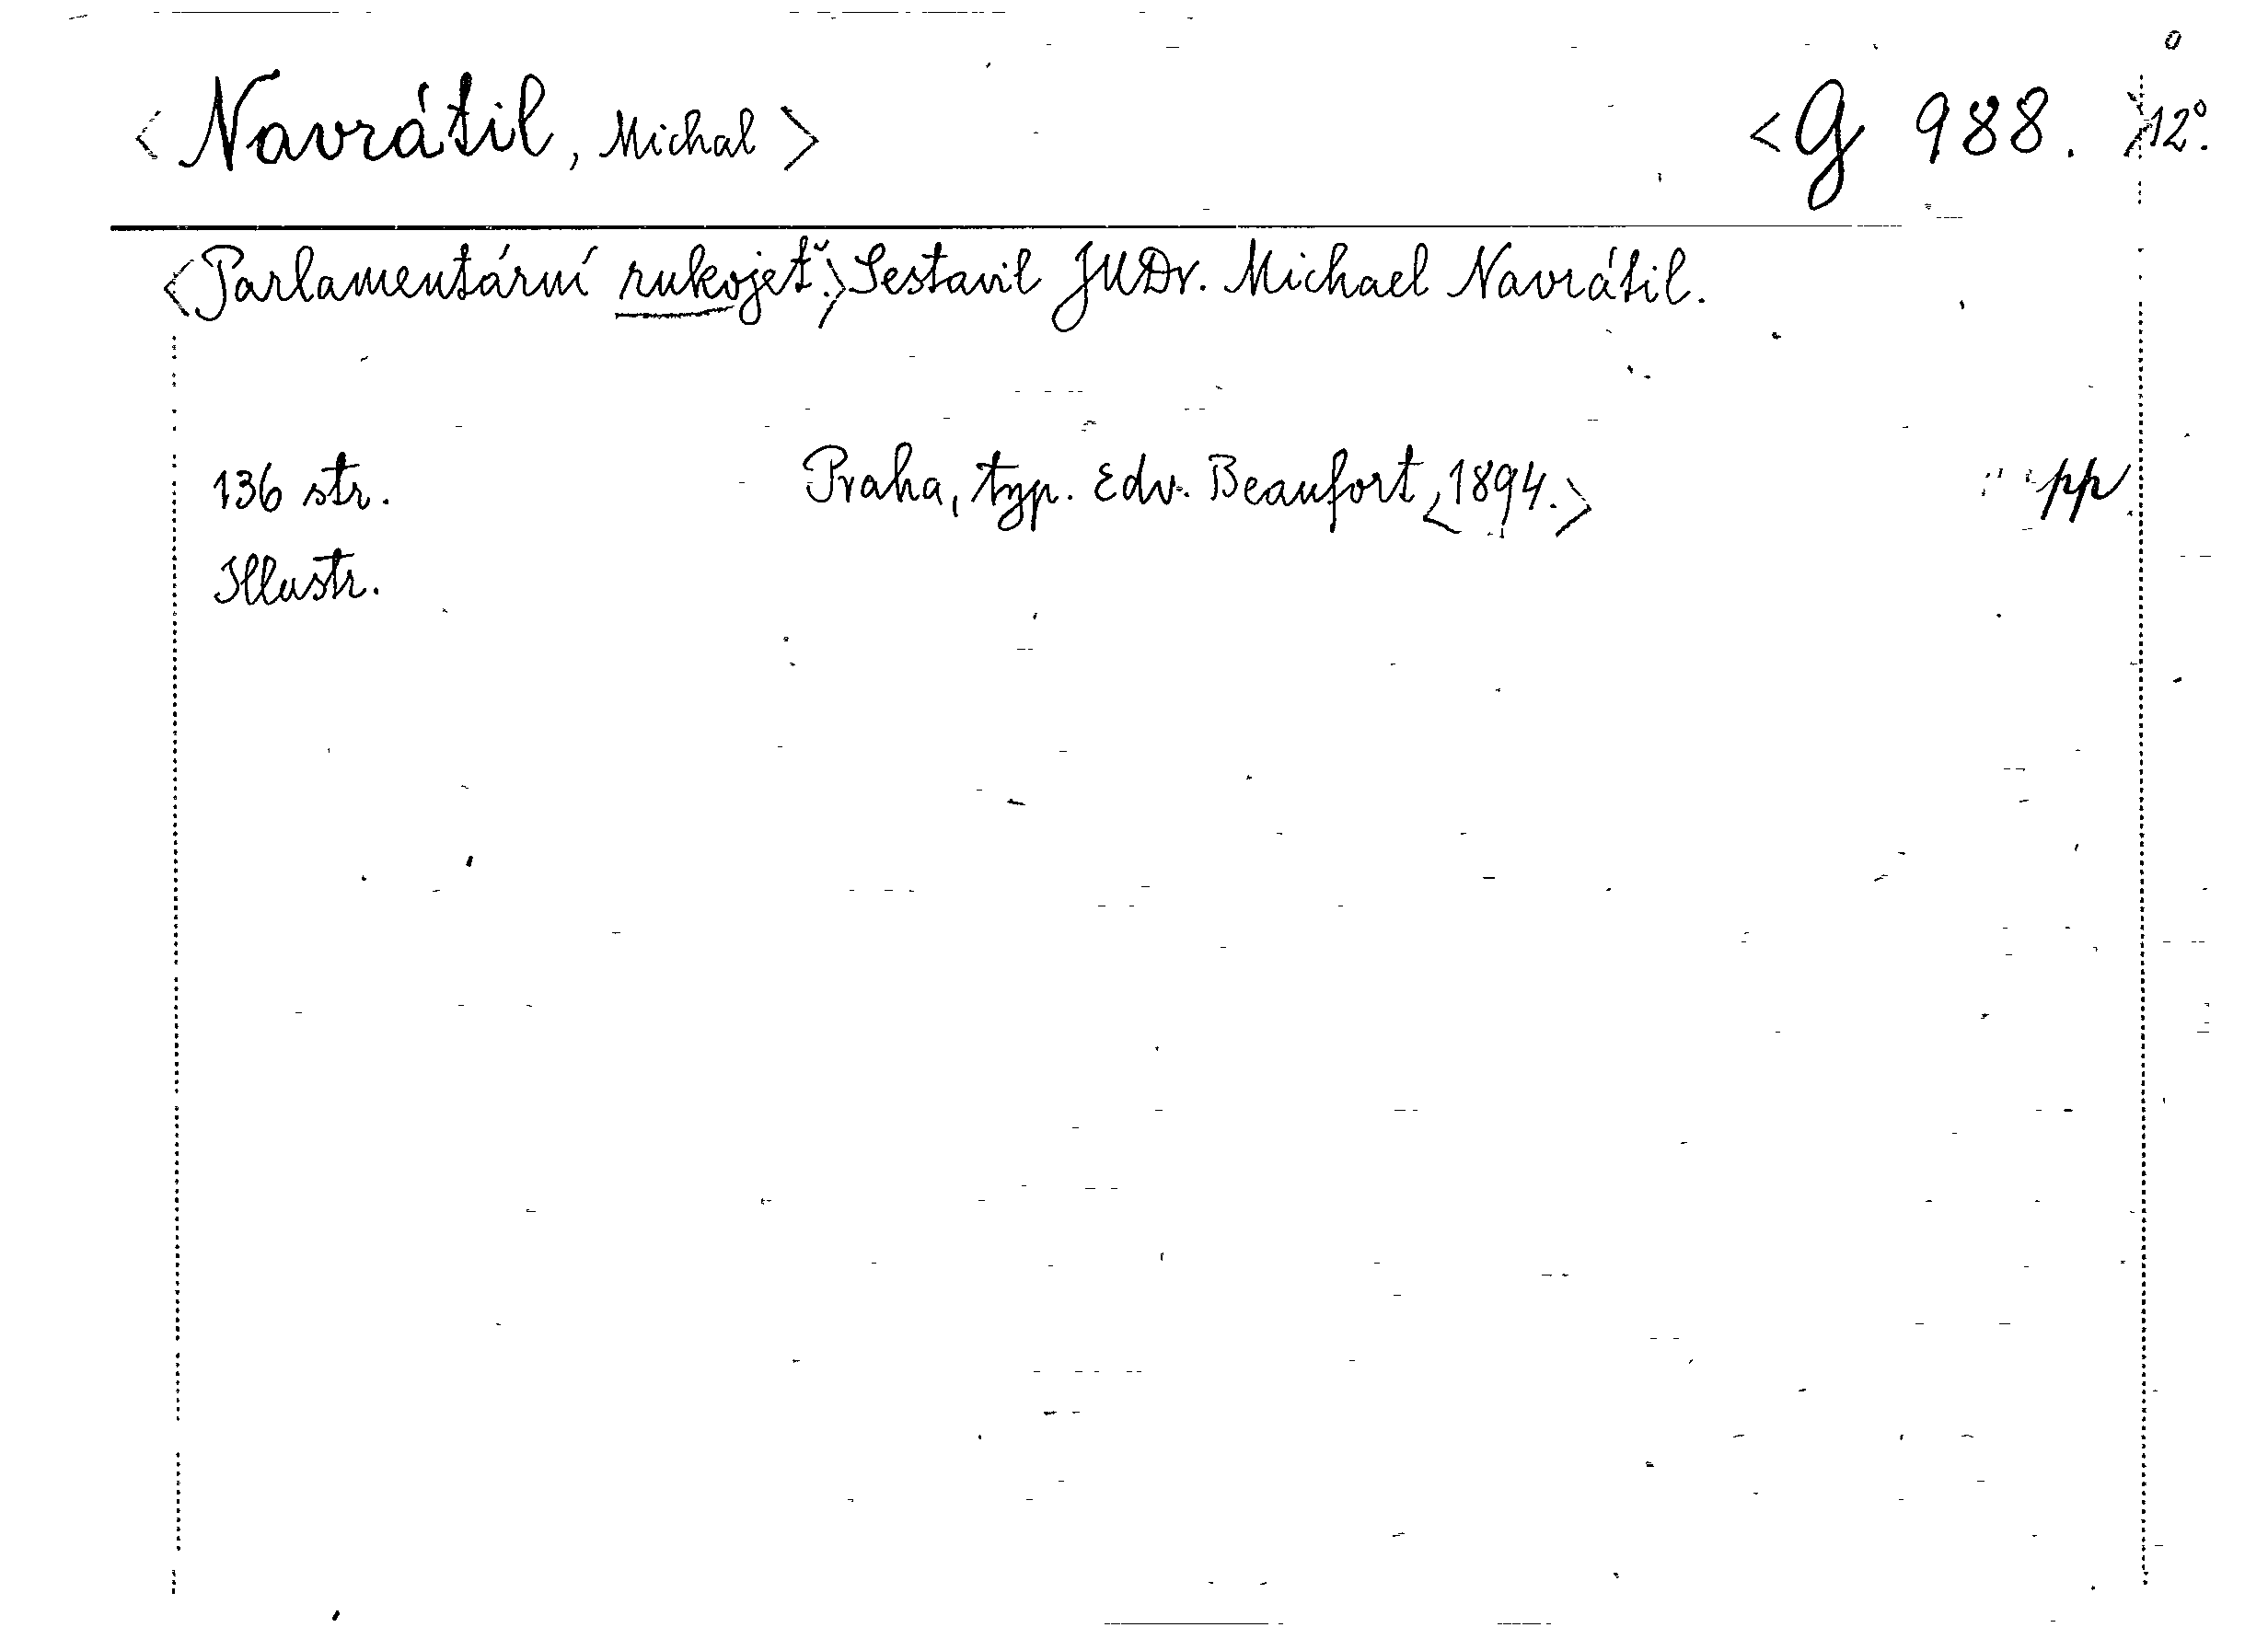 <Navrátil, Michal> <G 988.> 12°.
<Parlamentární rukojeť.> Sestavil JUDr. Michael Navrátil.
136 str. Praha, typ. Edv. Beaufort <1894.> pp
Illustr.